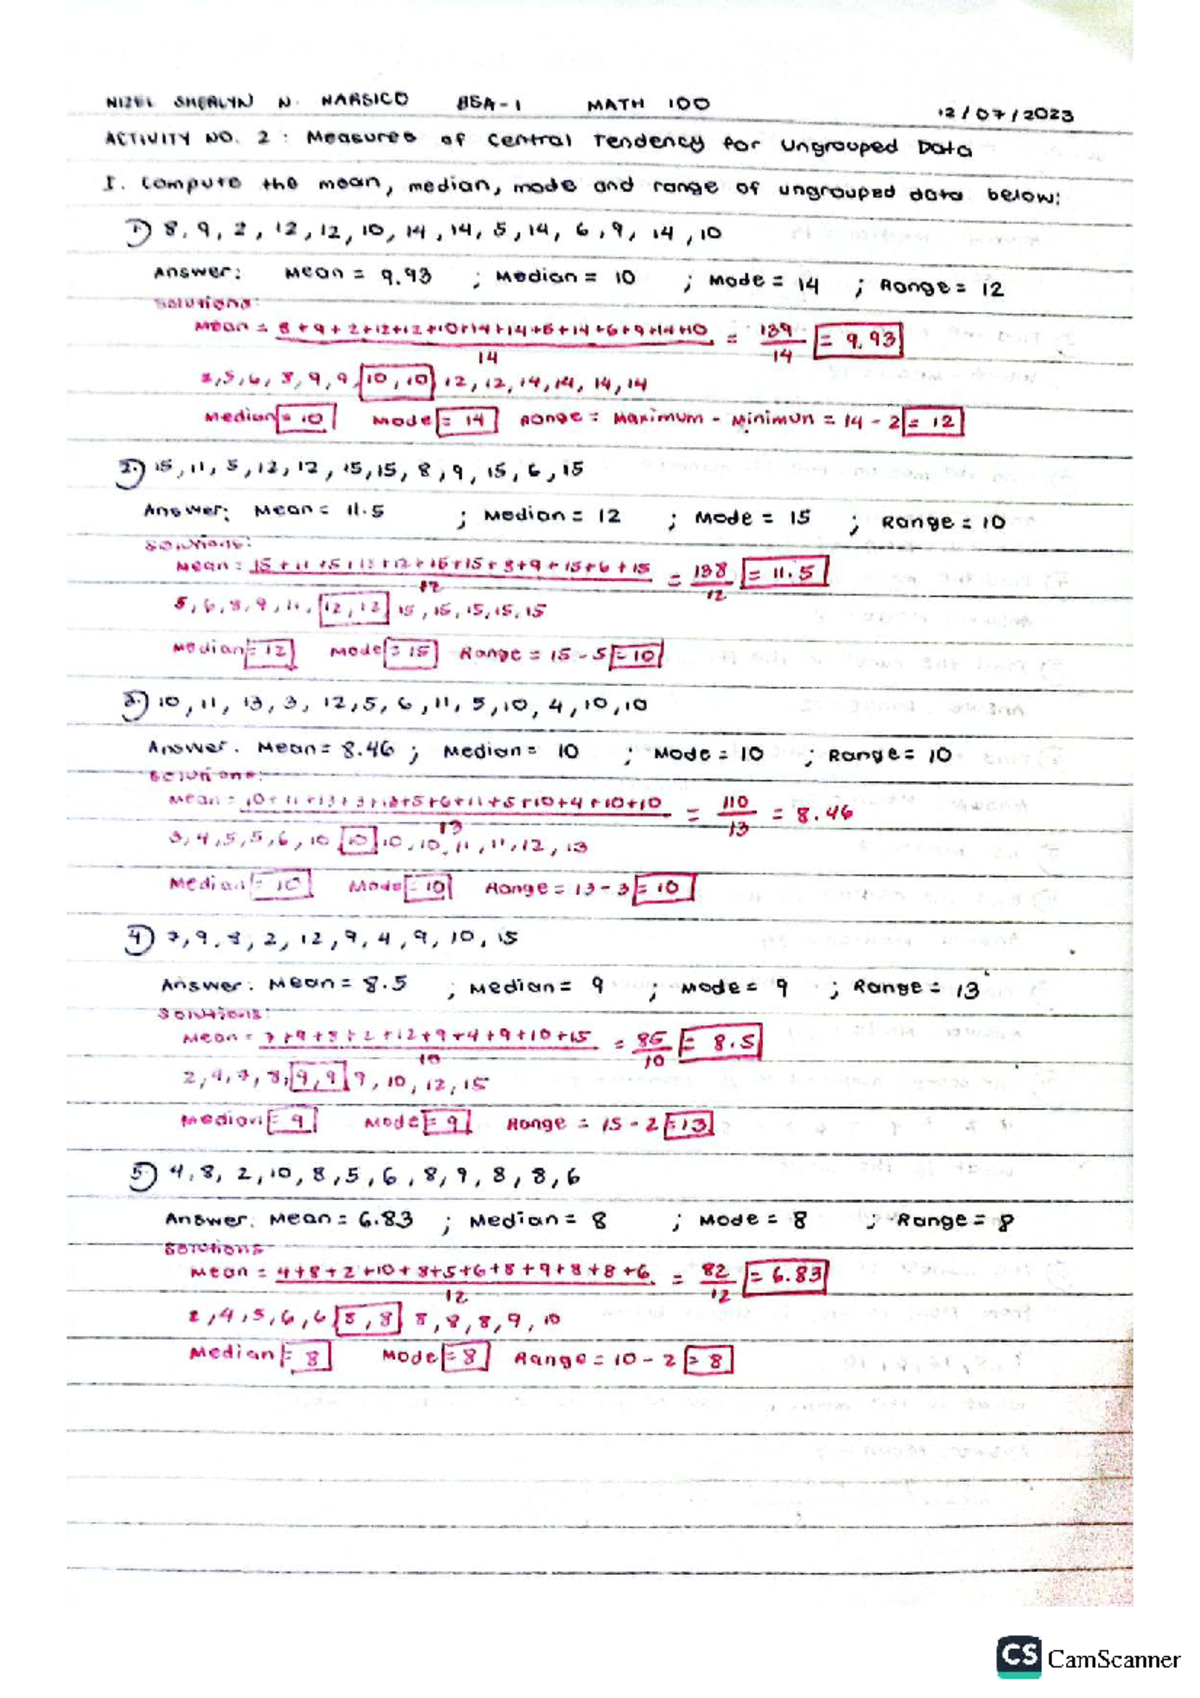 NIZEL SHERLYN N. NARSICO BSA-1 MATH 100 12/07/2023
ACTIVITY NO. 2 : Measures of Central Tendency for Ungrouped Data
I. Compute the mean, median, mode and range of ungrouped data below:
1) 8, 9, 2, 12, 12, 10, 14, 14, 5, 14, 6, 9, 14, 10
Answer: Mean = 9.93 ; Median = 10 ; Mode = 14 ; Range = 12
Solutions:
Mean = 8+9+2+12+12+10+14+14+5+14+6+9+14+10 = 139 = 9.93
14 14
2,5,6, 8,9,9, 10,10, 12,12,14,14, 14,14
Median = 10 Mode = 14 Range = Maximum - Minimun = 14 - 2 = 12
2.) 15, 11, 5, 12, 12, 15, 15, 8, 9, 15, 6, 15
Answer: Mean = 11.5 ; Median = 12 ; Mode = 15 ; Range = 10
Solutions:
Mean = 15+11+5+12+12+15+15+8+9+15+6+15 = 138 = 11.5
12 12
5, 6, 8, 9, 11, 12, 12 15, 15, 15, 15, 15
Median = 12 Mode = 15 Range = 15 - 5 = 10
3.) 10, 11, 13, 3, 12, 5, 6, 11, 5, 10, 4, 10, 10
Answer. Mean = 8.46 ; Median = 10 ; Mode = 10 ; Range = 10
Solutions:
Mean = 10+11+13+3+12+5+6+11+5+10+4+10+10 = 110 = 8.46
13 13
3, 4, 5, 5, 6, 10 10 10, 10, 11, 11, 12, 13
Median = 10 Mode = 10 Range = 13 - 3 = 10
4) 7, 9, 8, 2, 12, 9, 4, 9, 10, 15
Answer: Mean = 8.5 ; Median = 9 ; Mode = 9 ; Range = 13
Solutions:
Mean = 7+9+8+2+12+9+4+9+10+15 = 85 = 8.5
10 10
2, 4, 7, 8, 9, 9 9, 10, 12, 15
Median = 9 Mode = 9 Range = 15 - 2 = 13
5) 4, 8, 2, 10, 8, 5, 6, 8, 9, 8, 8, 6
Answer: Mean = 6.83 ; Median = 8 ; Mode = 8 ; Range = 8
Solutions
Mean = 4+8+2+10+8+5+6+8+9+8+8+6 = 82 = 6.83
12 12
2, 4, 5, 6, 6 8, 8 8, 8, 8, 9, 10
Median = 8 Mode = 8 Range = 10 - 2 = 8
CS CamScanner